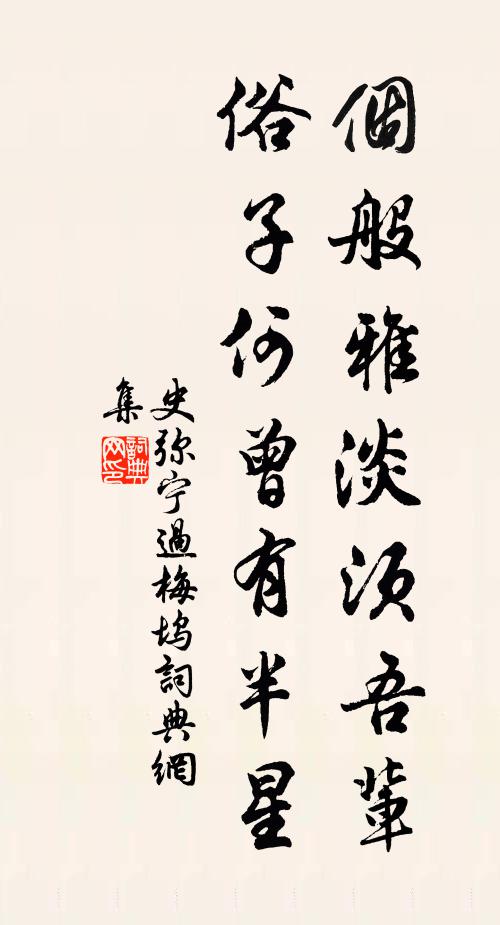 個般雅淡須吾輩
俗子何曾有半星
史弥宁過梅坞詞典網
集
詞典网印